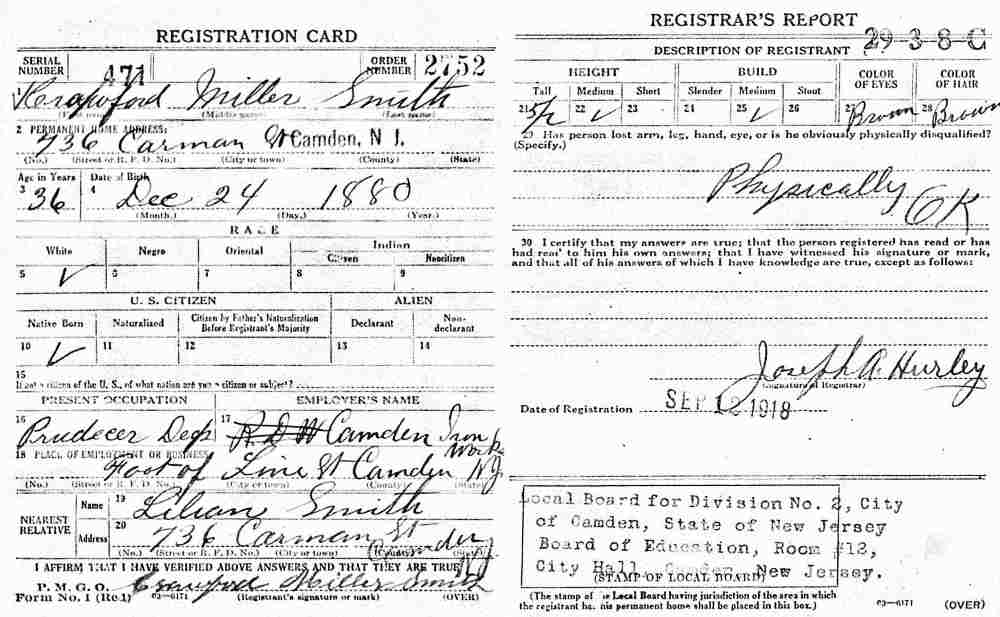 REGISTRATION CARD
SERIAL NUMBER 471 ORDER NUMBER 2752
1 Crawford Miller Smith
(First name) (Middle name) (Last name)
2 PERMANENT HOME ADDRESS:
736 Carman St Camden, N J.
(No.) (Street or R. F. D. No.) (City or town) (County) (State)
Age in Years Date of Birth
3 36 4 Dec 24 1880
(Month.) (Day.) (Year.)
RACE
White Negro Oriental Indian
Citizen Noncitizen
5 ✓ 6 7 8 9
U. S. CITIZEN ALIEN
Native Born Naturalized Citizen by Father's Naturalization Before Registrant's Majority Declarant Non-declarant
10 ✓ 11 12 13 14
15
If not a citizen of the U. S., of what nation are you a citizen or subject?
PRESENT OCCUPATION EMPLOYER'S NAME
16 17 Camden Iron Work
18 PLACE OF EMPLOYMENT OR BUSINESS
Foot of Line St Camden NJ
(No.) (Street or R. F. D. No.) (City or town) (County) (State)
NEAREST RELATIVE Name 19 Lilian Smith
Address 20 736 Carman St Camden NJ
(No.) (Street or R. F. D. No.) (City or town) (County) (State)
I AFFIRM THAT I HAVE VERIFIED ABOVE ANSWERS AND THAT THEY ARE TRUE
P. M. G. O. Crawford Miller Smith
Form No. 1 (Red) 03—6171 (Registrant's signature or mark) (OVER)
REGISTRAR'S REPORT
29-3-8-C
DESCRIPTION OF REGISTRANT
HEIGHT BUILD COLOR OF EYES COLOR OF HAIR
Tall Medium Short Slender Medium Stout
21 22 ✓ 23 24 25 ✓ 26 27 Brown 28 Brown
29 Has person lost arm, leg, hand, eye, or is he obviously physically disqualified?
(Specify.)
Physically OK
30 I certify that my answers are true; that the person registered has read or has
had read to him his own answers; that I have witnessed his signature or mark,
and that all of his answers of which I have knowledge are true, except as follows:
Joseph A. Hurley
(Signature of Registrar)
Date of Registration SEP 12 1918
Local Board for Division No. 2, City
of Camden, State of New Jersey
Board of Education, Room #12,
City Hall, Camden, New Jersey.
(STAMP OF LOCAL BOARD)
(The stamp of the Local Board having jurisdiction of the area in which
the registrant has his permanent home shall be placed in this box.)
03—6171 (OVER)